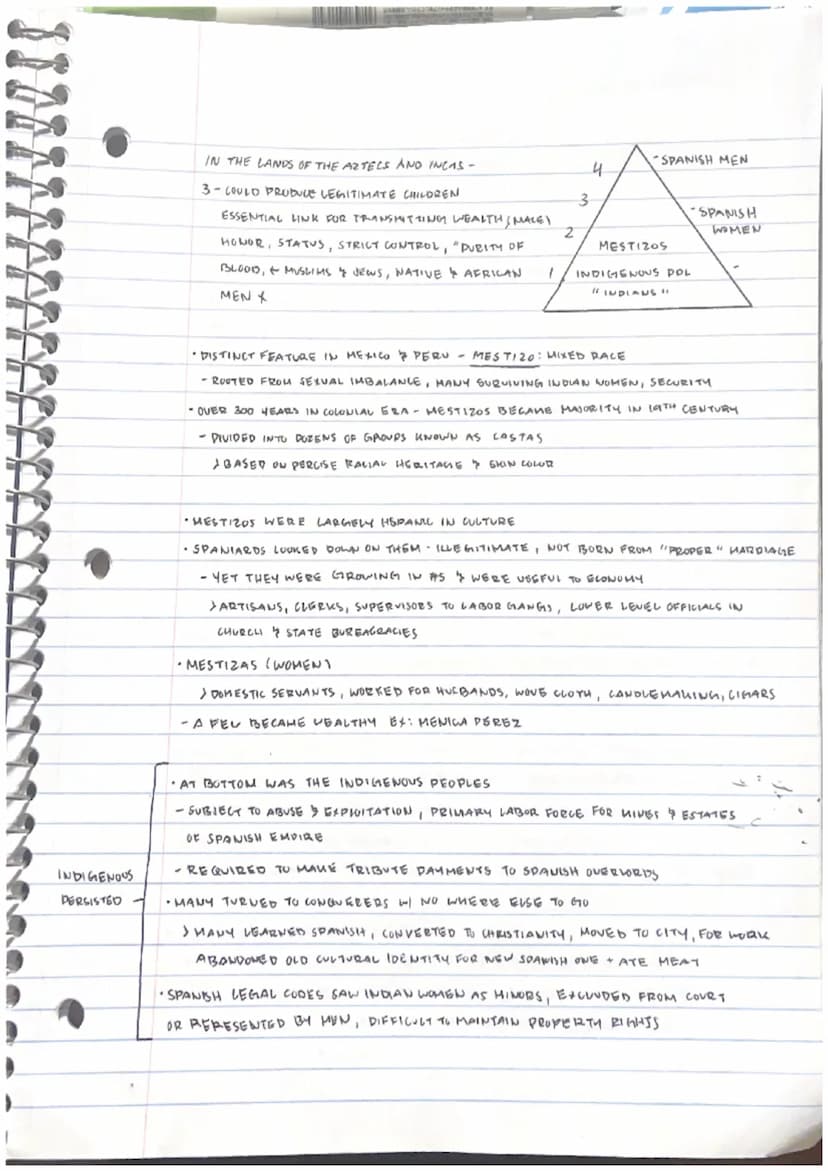 IN THE LANDS OF THE AZTECS AND INCAS -
3 - COULD PRODUCE LEGITIMATE CHILDREN
ESSENTIAL LINK FOR TRANSMITTING WEALTH, (MALE)
HONOR, STATUS, STRICT CONTROL, "PURITY OF
BLOOD, ← MUSLIMS & JEWS, NATIVE & AFRICAN
MEN X
4
3
2
1
- SPANISH MEN
- SPANISH
WOMEN
-
MESTIZOS
INDIGENOUS PPL
"INDIANS"
• DISTINCT FEATURE IN MEXICO & PERU - MESTIZO: MIXED RACE
- ROOTED FROM SEXUAL IMBALANCE, MANY SURVIVING INDIAN WOMEN, SECURITY
• OVER 300 YEARS IN COLONIAL ERA - MESTIZOS BECAME MAJORITY IN 19TH CENTURY
- DIVIDED INTO DOZENS OF GROUPS KNOWN AS CASTAS
> BASED ON PERCISE RACIAL HERITAGE & SKIN COLOR
• MESTIZOS WERE LARGELY HSPANIC IN CULTURE
• SPANIARDS LOOKED DOWN ON THEM - ILLEGITIMATE, NOT BORN FROM "PROPER" MARRIAGE
- YET THEY WERE GROWING IN #S & WERE USEFUL TO ECONOMY
> ARTISANS, CLERKS, SUPERVISORS TO LABOR GANGS, LOWER LEVEL OFFICIALS IN
CHURCH & STATE BUREAGRACIES
• MESTIZAS (WOMEN)
> DOMESTIC SERVANTS, WORKED FOR HUSBANDS, WOVE CLOTH, CANDLEMAKING, CIGARS
- A FEW BECAME WEALTHY EX: MENICA PEREZ
INDIGENOUS
PERSISTED
• AT BOTTOM WAS THE INDIGENOUS PEOPLES
- SUBJECT TO ABUSE & EXPLOITATION, PRIMARY LABOR FORCE FOR MINES & ESTATES
OF SPANISH EMPIRE
- REQUIRED TO MAKE TRIBUTE PAYMENTS TO SPANISH OVERLORDS
• MANY TURNED TO CONQUERERS W/ NO WHERE ELSE TO GO
> MANY LEARNED SPANISH, CONVERTED TO CHRISTIANITY, MOVED TO CITY, FOR WORK
ABANDONED OLD CULTURAL IDENTITY FOR NEW SPANISH ONE + ATE MEAT
• SPANISH LEGAL CODES SAW INDIAN WOMEN AS MINORS, EXCLUDED FROM COURT
OR REPRESENTED BY MEN, DIFFICULT TO MAINTAIN PROPERTY RIGHTS